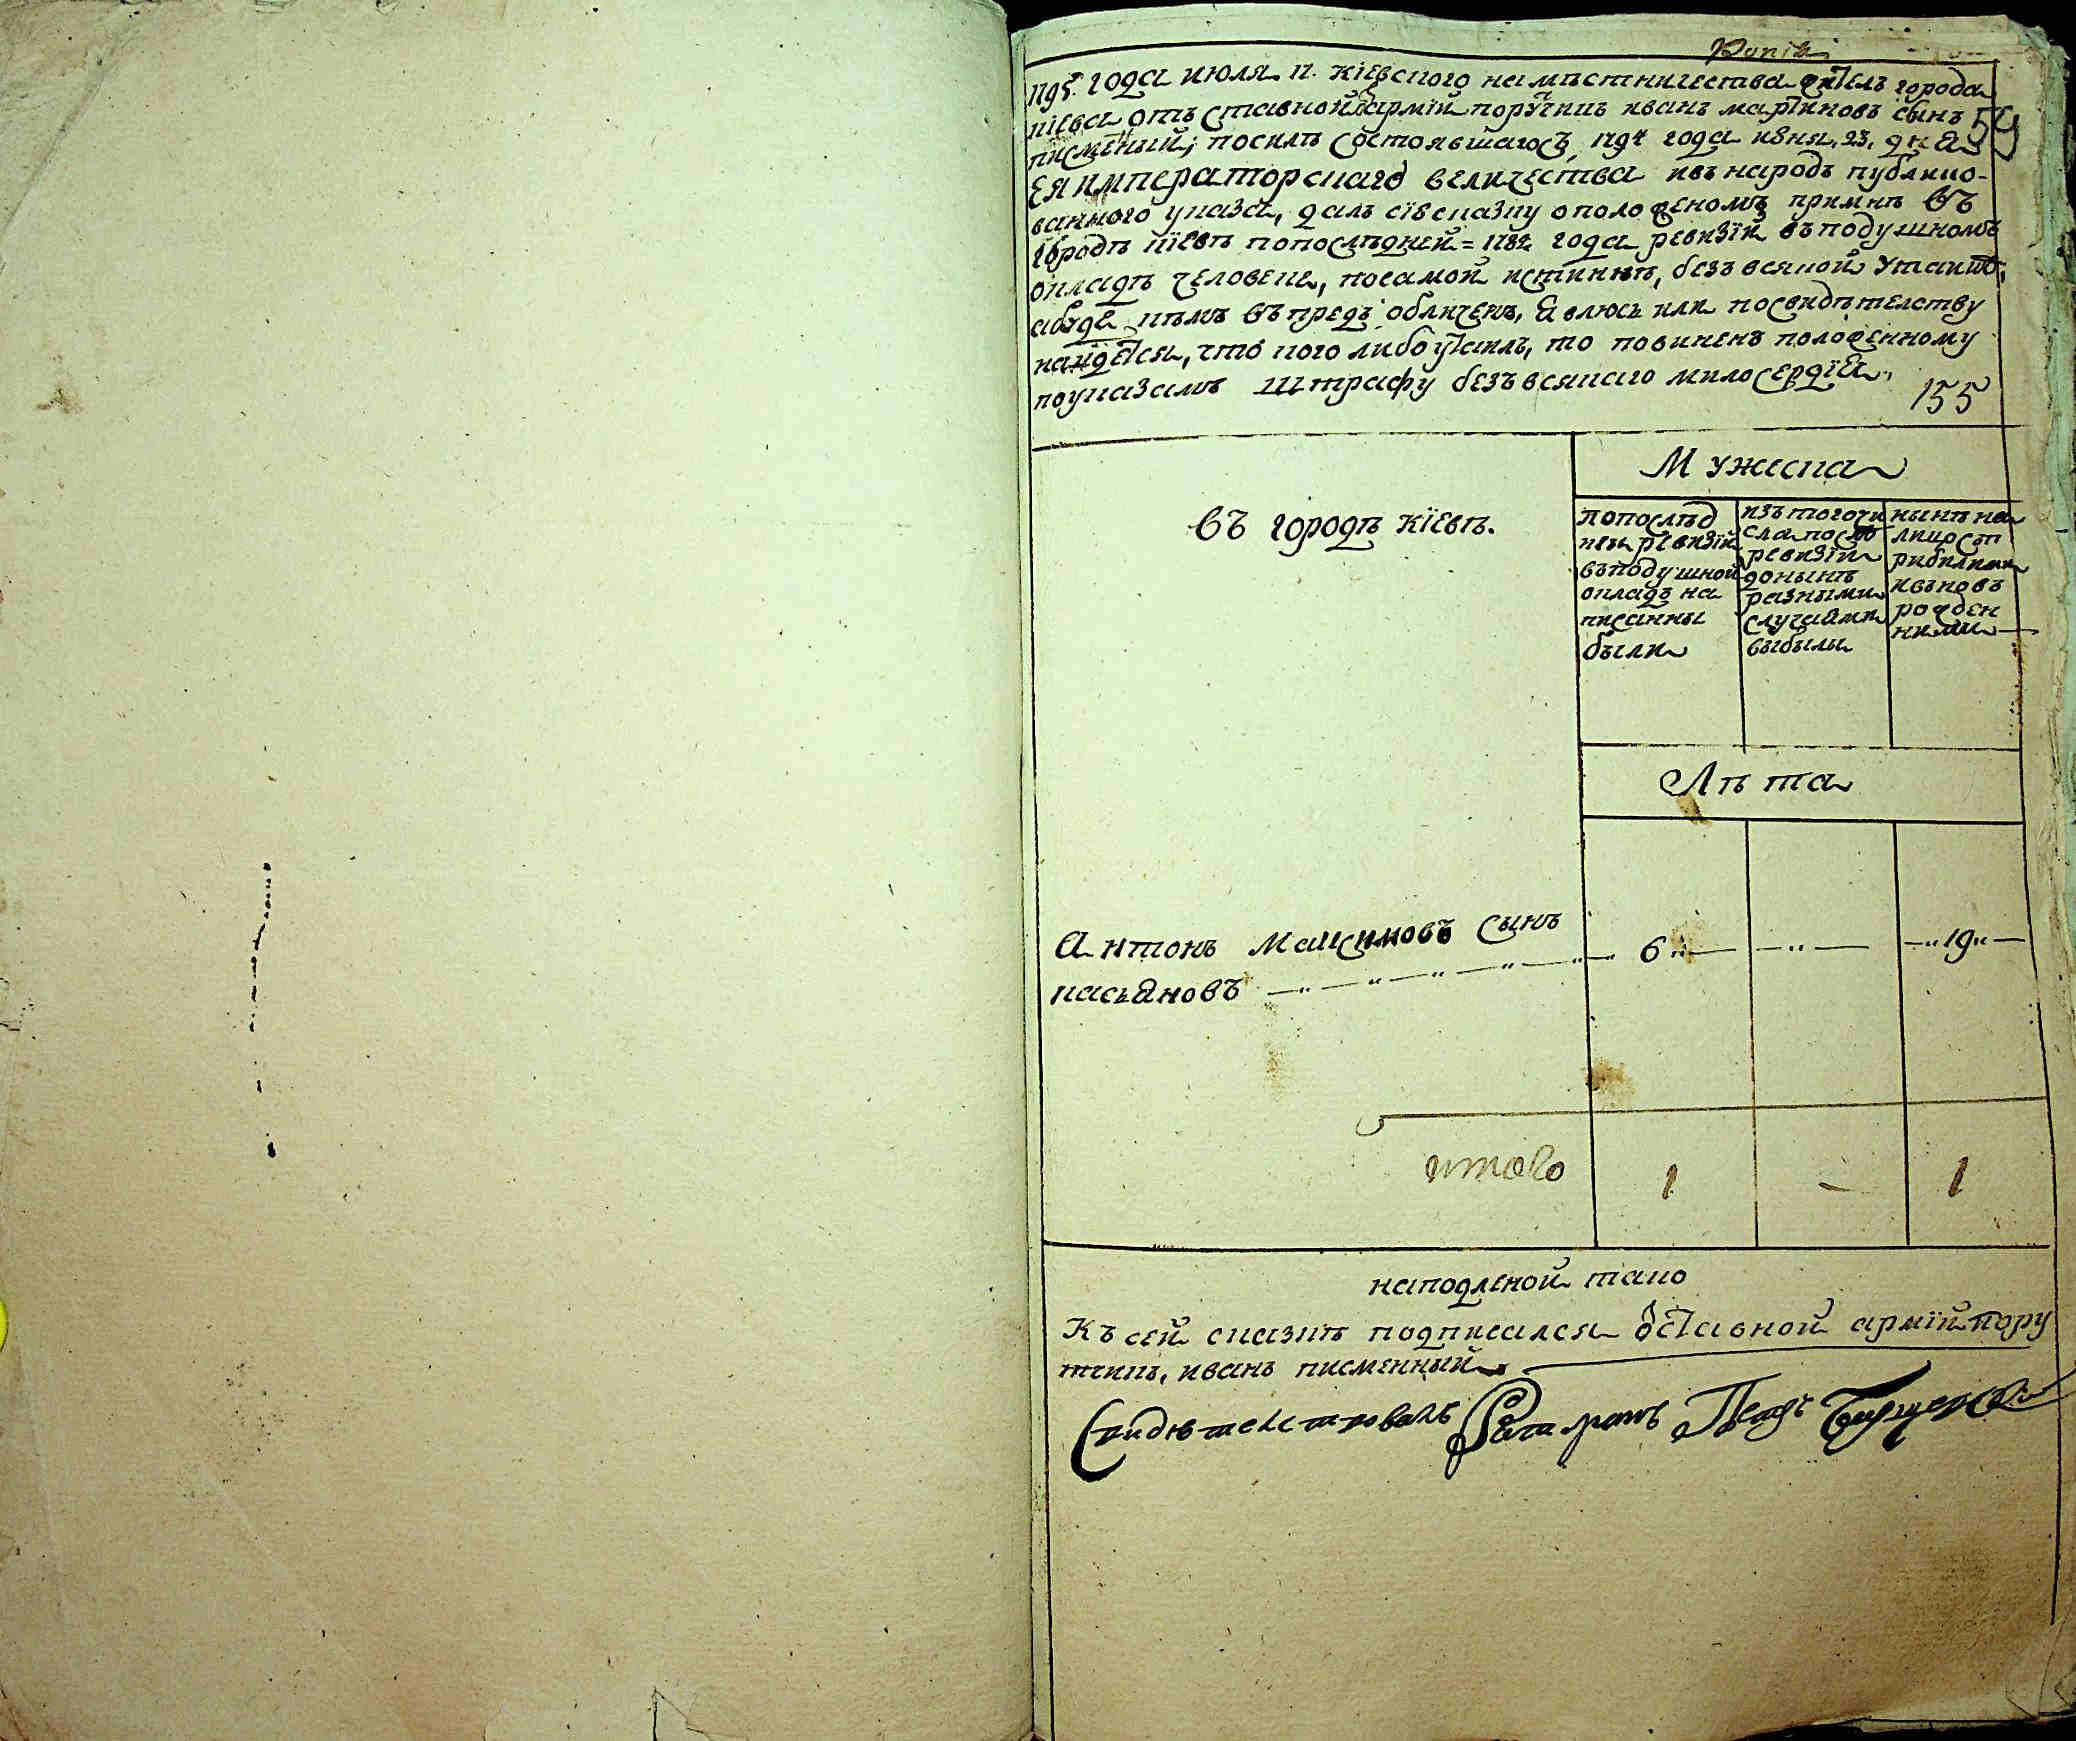 Копія
1795. года июля п. кіевского намѣстничества житель города
кіева отъ ставной арміи поручикъ иванъ мартиновъ сынъ
59
писменый; посилѣ состоявшагось, 1794 года июня, 23, дня
Ея императорскаго величества ивъ народъ публико-
ванного указа, далъ сїю сказку о положеномъ примнѣ въ
городѣ кїевѣ попослѣдней = 1782 года ревизїи въ подушномъ
окладѣ человеке, посамой истиннѣ, безъ всякой утайки,
абуде кѣмъ въ предъ обличенъ, явлюсь или посвидѣтелству
найдется, что кого либо утаилъ, то повиненъ положенному
поуказамъ штрафу безъ всякаго милосердїя.
155
Мужеска
въ городѣ кїевѣ.
попослѣд
ней ревизїи
въподушной
окладъ на
писанны
были
изъ того чи
сла послѣ
ревизїи
донынѣ
разными
случаями
выбыли
нынѣ на
лицо съ п
рибилыми
ивъновъ
рожден
ними
Лѣта
Антонъ Максимовъ сынъ
касьяновъ 6 " 19
итого 1 - 1
наподленой тако
Къ сей сказкѣ подписался отставной арміи пору
тчикъ, иванъ писменный
Свидѣтелстровалъ Ратманъ Петръ